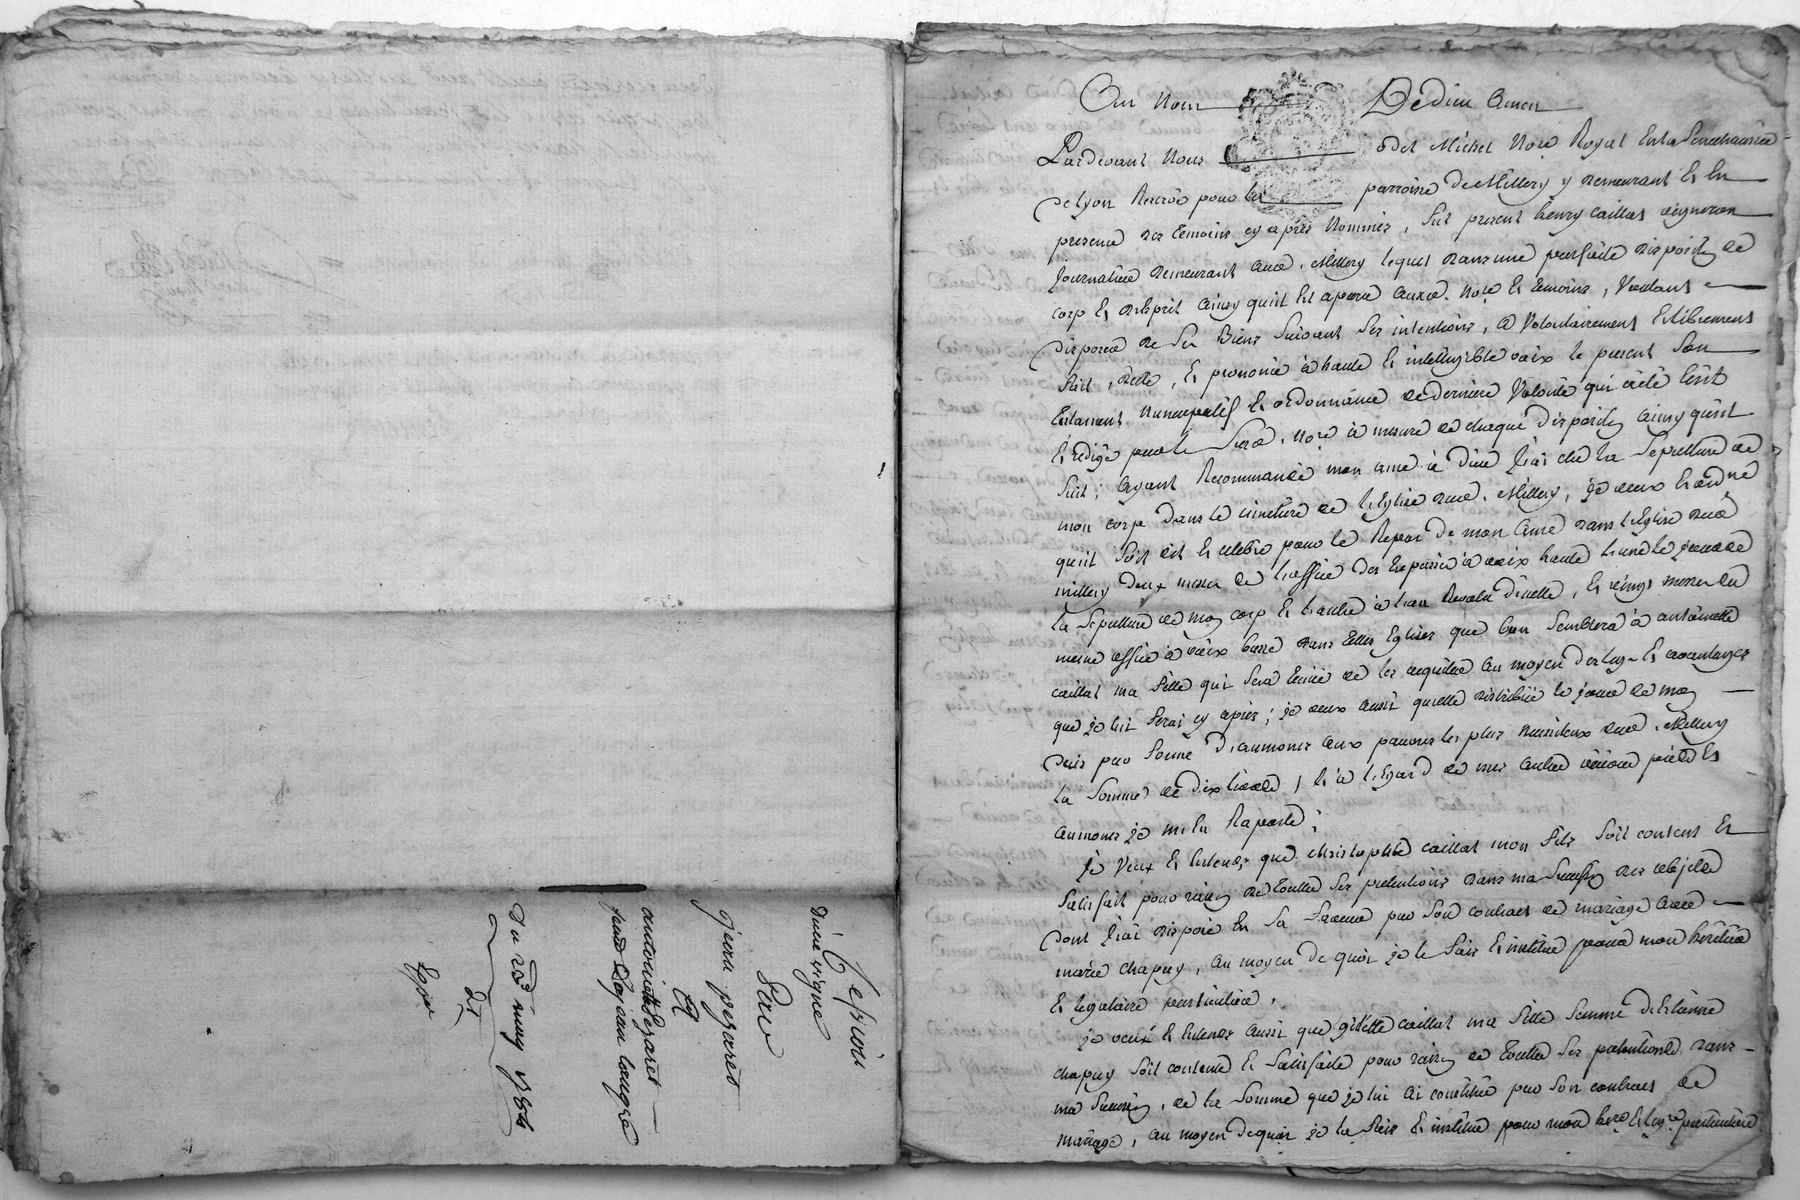 Cession
d'une vigne
Par
jean pezaret
A
antoinette Pezaret
Du 20d may 1786
Exp.on
Au Nom De dieu Amen
Pardevant Nous odet Michel No.re Royal En la Senechaussée
de Lyon Reservé pour la parroisse de Millery y demeurant Et En
presence des temoins cy apres Nommés, fut present henry Caillat vigneron
Journalier demeurant aud. Millery lequel dans une parfaite disposi.on de
corp Et d'Esprit ainsy quil Est aparu auxd. No.re Et temoins, Voulant
disposer de Ses Biens Suivant Ses intentions, a Volontairement Et librement
fait, dicté, Et prononcé à haute Et intelligible voix le present Son
testament Nuncupatif Et ordonnance de derniere Volonté qui a été Ecrit
Et redigé par led. No.re à mesure de chaque disposi.on ainsy qu'il
Suit; ayant Recommandé mon ame à dieu J'ai élu la Sepulture de
mon corps dans le cimetiere de l'Eglise dud. Millery, je veux Et ordonne
quil Soit dit Et celebré pour le Repos de mon Ame dans l'Eglise dud.
millery deux messes de l'office des trepassés à voix haute l'une le jour de
la Sepulture de mon corp Et l'autre à l'an Revolu d'icelle, Et vingt messes du
meme office à voix basse dans telles Eglises que bon Semblera à antoinette
caillat ma fille qui Sera tenue de les acquitter au moyen des legs Et avantages
que je lui ferai cy après; je veux aussi quelle distribue le jour de mon
deces par forme d'aumones aux pauvres les plus necessiteux dud. Millery
la Somme de dix livres, Et à l'Egard de mes autres oeuvres pies Et
aumones je m'En Raporte;
Je Veux Et Entends que christophle caillat mon fils Soit content Et
Satisfait pour raison de toutes Ses pretentions dans ma Succession des objets
dont J'ai disposé En Sa faveur par Son contract de mariage avec
marie chapuy, au moyen de quoi je le fais Et institue pour mon heritier
Et legataire particulier.
Je veux Et Entends aussi que gillette caillat ma fille femme d'Etienne
chapuy Soit contente Et Satisfaite pour raison de toutes Ses pretentions dans
ma Succession, de la Somme que je lui ai constituée par Son contract de
mariage, au moyen de quoi je la fais Et institue pour mon here Et legre particuliere